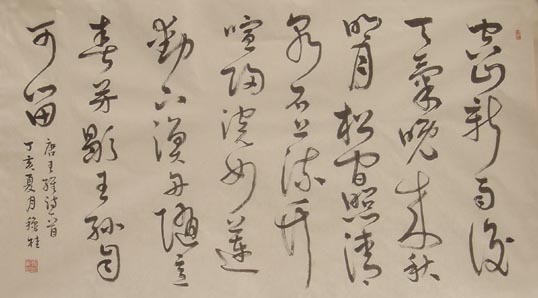 空山新雨後
天氣晚來秋
明月松間照清
泉石上流竹
喧歸浣女蓮
動下漁舟隨意
春芳歇王孫自
可留
唐王維詩一首
丁亥夏月